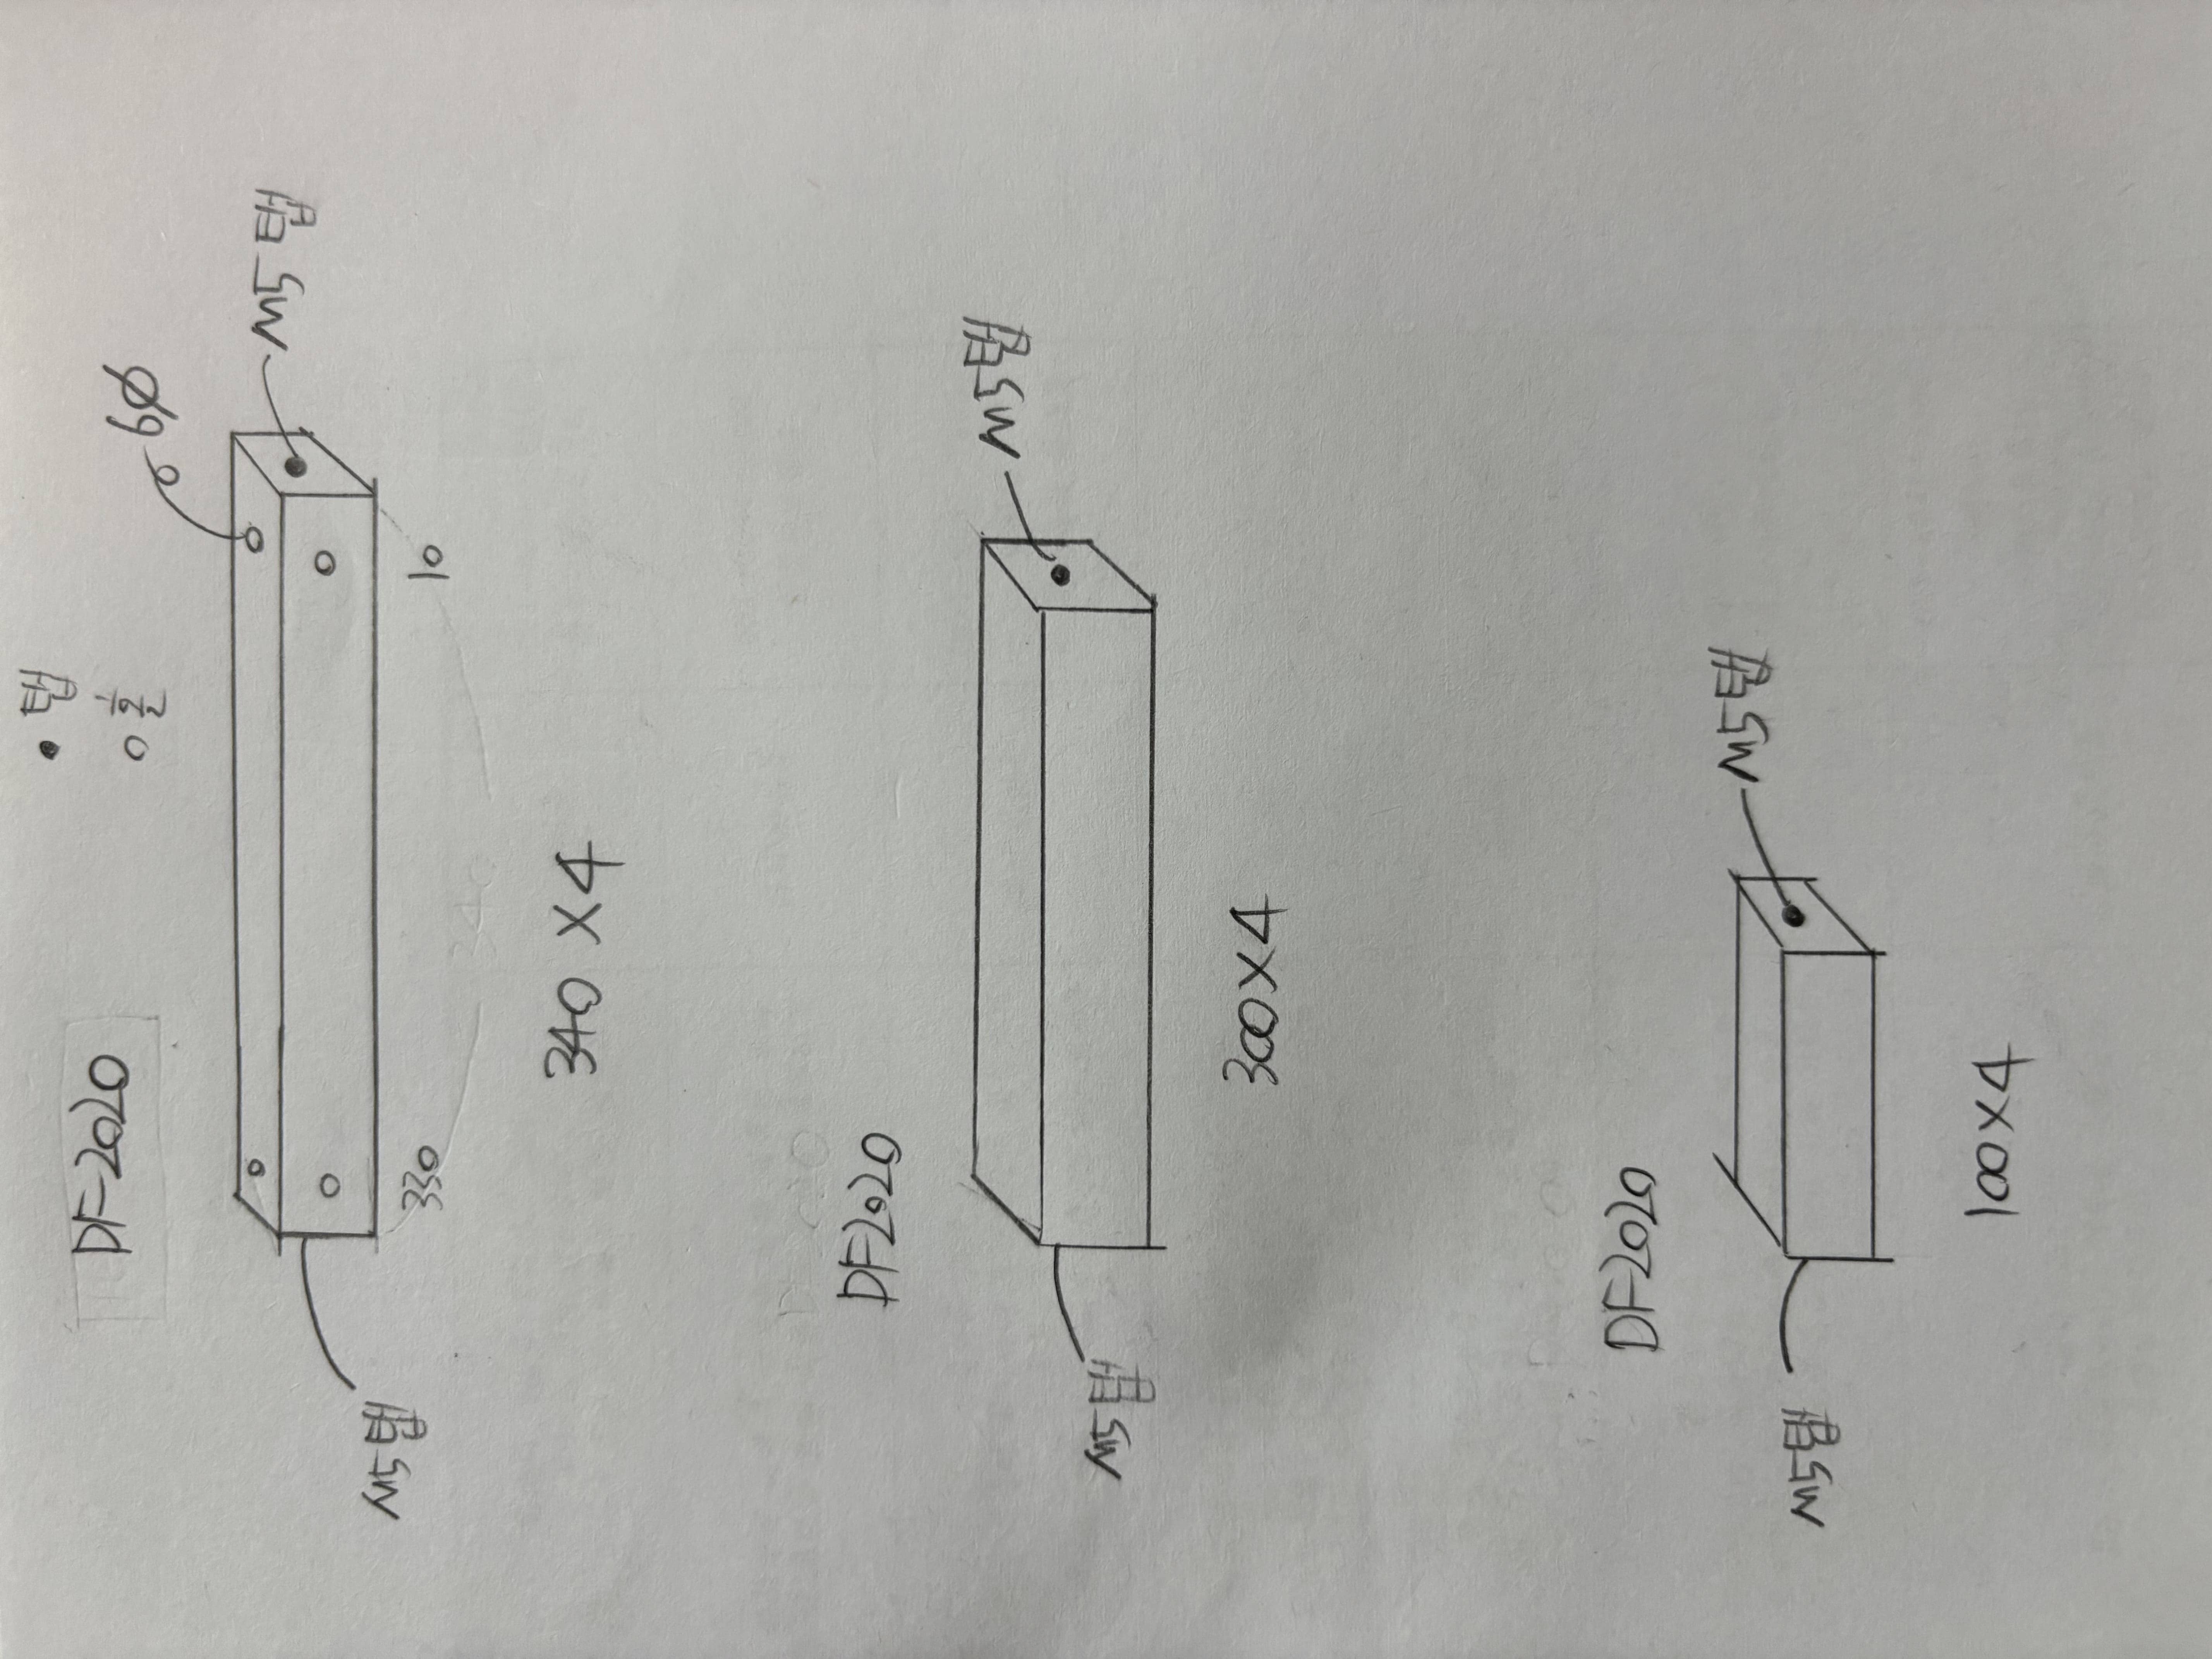 ● 탭
○ 홀
DF2020
6Ø
M5탭
M5탭
330
10
340 X 4
DF2020
M5탭
M5탭
300X4
DF2020
M5탭
M5탭
100X4